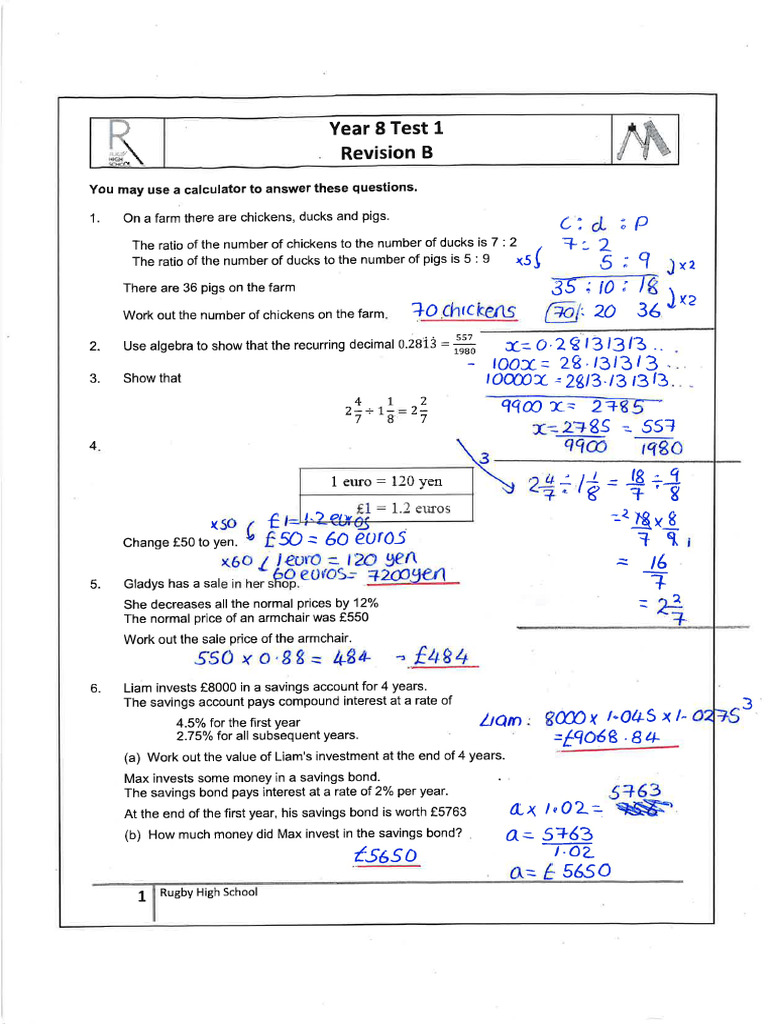 R
RUGBY
HIGH
SCHOOL
Year 8 Test 1
Revision B
M
You may use a calculator to answer these questions.
1. On a farm there are chickens, ducks and pigs.
The ratio of the number of chickens to the number of ducks is 7 : 2
The ratio of the number of ducks to the number of pigs is 5 : 9
There are 36 pigs on the farm
Work out the number of chickens on the farm. 70 chickens
C : d : P
7 : 2
x5 5 : 9 x2
35 : 10 : 18
70 : 20 36 x2
2. Use algebra to show that the recurring decimal 0.281̇3̇ = 557/1980
x = 0.28131313...
- 100x = 28.131313...
10000x = 2813.131313...
9900x = 2785
x = 2785/9900 = 557/1980
3. Show that
2 4/7 ÷ 1 1/8 = 2 2/7
3
2 4/7 ÷ 1 1/8 = 18/7 ÷ 9/8
= 2 18/7 x 8/9 1
= 16/7
= 2 2/7
4.
1 euro = 120 yen
£1 = 1.2 euros
x50 £1 = 1.2 euros
Change £50 to yen. £50 = 60 euros
x60 1 euro = 120 yen
60 euros = 7200 yen
5. Gladys has a sale in her shop.
She decreases all the normal prices by 12%
The normal price of an armchair was £550
Work out the sale price of the armchair.
550 x 0.88 = 484 → £484
6. Liam invests £8000 in a savings account for 4 years.
The savings account pays compound interest at a rate of
4.5% for the first year
2.75% for all subsequent years.
(a) Work out the value of Liam's investment at the end of 4 years.
Liam: 8000 x 1.045 x 1.0275³
= £9068.84
Max invests some money in a savings bond.
The savings bond pays interest at a rate of 2% per year.
At the end of the first year, his savings bond is worth £5763
(b) How much money did Max invest in the savings bond?
£5650
5763
a x 1.02 =
a = 5763/1.02
a = £5650
1 Rugby High School